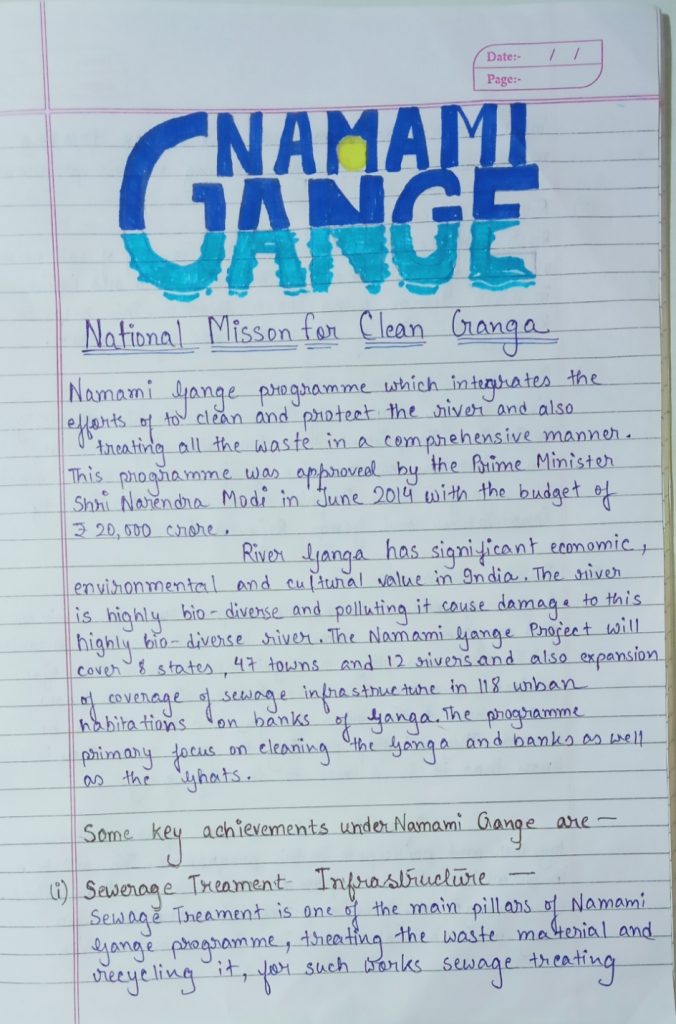 Date:- / /
Page:-
NAMAMI
GANGE
National Misson for Clean Ganga
Namami Gange programme which integrates the
efforts of to clean and protect the river and also
treating all the waste in a comprehensive manner.
This programme was approved by the Prime Minister
Shri Narendra Modi in June 2014 with the budget of
₹ 20,000 crore.
River Ganga has significant economic,
environmental and cultural value in India. The river
is highly bio-diverse and polluting it cause damage to this
highly bio-diverse river. The Namami Gange Project will
cover 8 states, 47 towns and 12 rivers and also expansion
of coverage of sewage infrastructure in 118 urban
habitations on banks of Ganga. The programme
primary focus on cleaning the Ganga and banks as well
as the Ghats.
Some key achievements under Namami Gange are —
(i) Sewerage Treament Infrastructure —
Sewage Treament is one of the main pillars of Namami
Gange programme, treating the waste material and
recycling it, for such works sewage treating